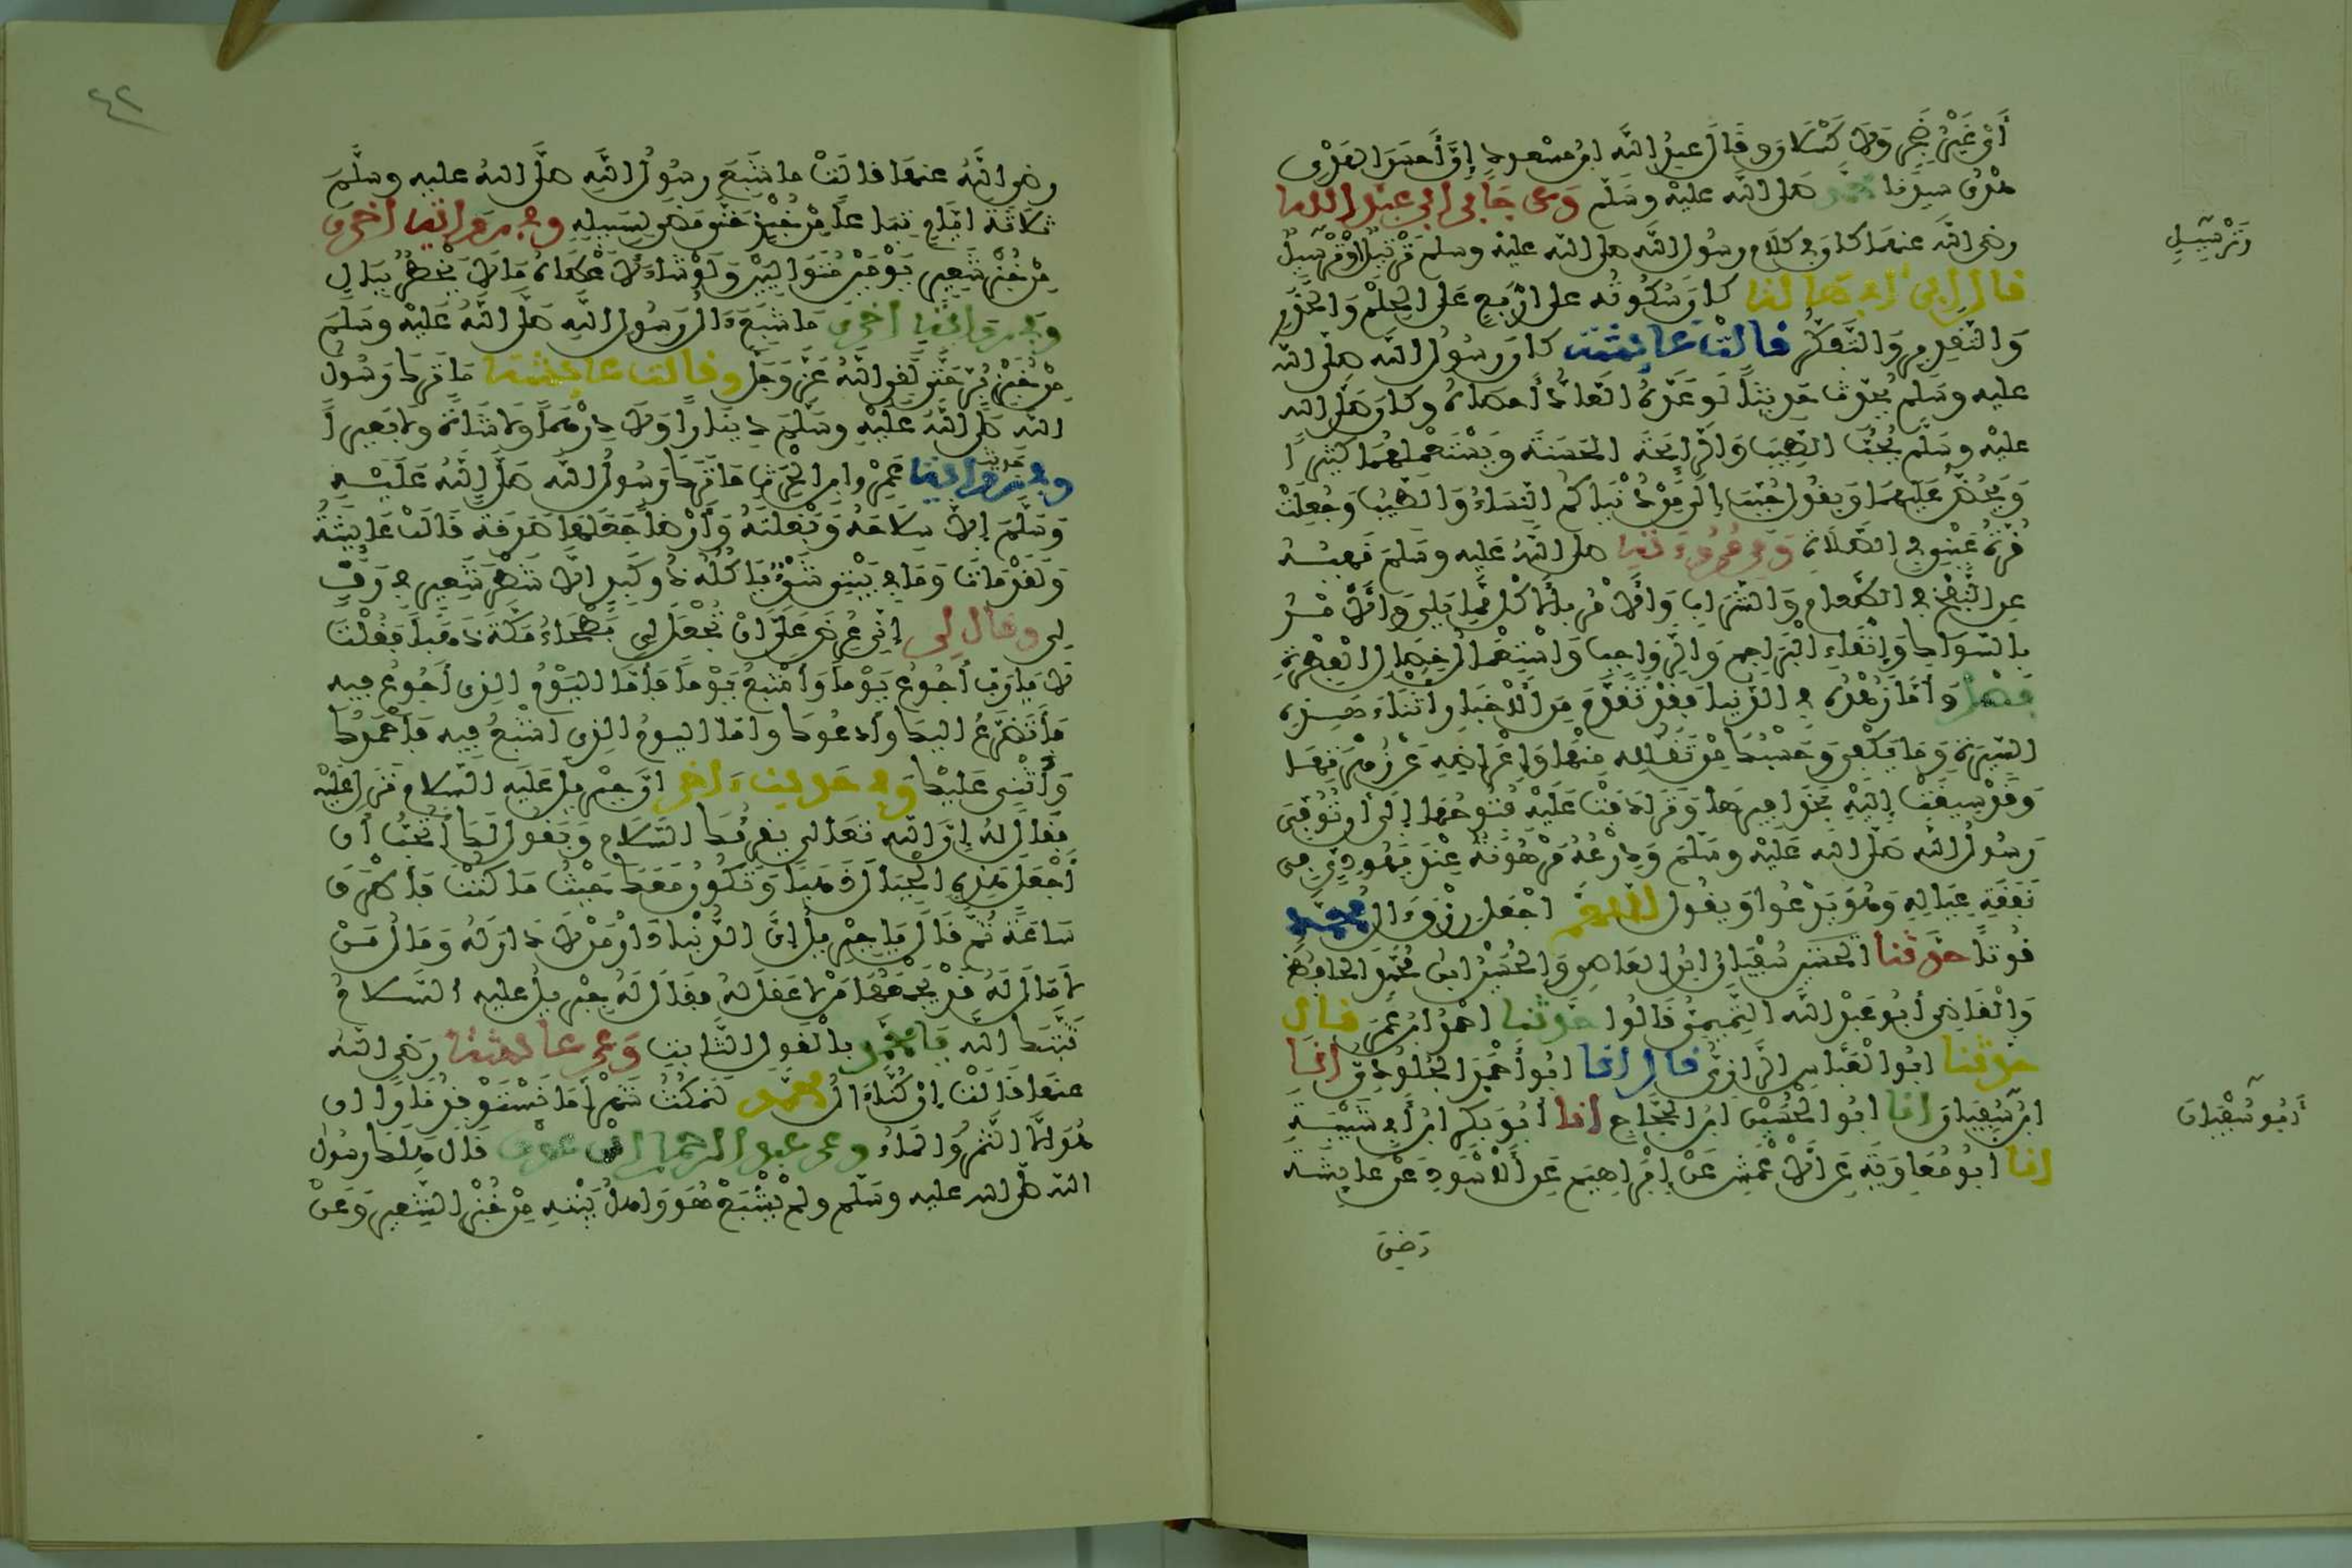 أي غير ضجر ولا كسلان وقال عبد الله ابن مسعود إن أحسن الهدي
هدي سيدنا محمد صلى الله عليه وسلم وعن جابر ابن عبد الله
رضي الله عنهما كان في كلام رسول الله صلى الله عليه وسلم ترتيل أو ترسيل
وترسيل
قال ابن أبي هالة كان سكوته على أربع على الحلم والحذر
والتقدير والتفكر قالت عائشة كان رسول الله صلى الله
عليه وسلم يحدث حديثا لو عده العاد أحصاه وكان صلى الله
عليه وسلم يحب الطيب والرائحة الحسنة ويستعملهما كثيرا
ويحض عليهما ويقول حبب إلي من دنياكم النساء والطيب وجعلت
قرة عيني في الصلاة ومن مروءته صلى الله عليه وسلم نهيه
عن النفخ في الطعام والشراب والأمر بالأكل مما يلي والأمر
بالسواك وإنقاء البراجم والرواجب واستعمال خصال الفطرة
فصل وأما زهده في الدنيا فقد تقدم من الأخبار أثناء هذه
السيرة وما يكفي وحسبك من تقلله منها وإعراضه عن زهرتها
وقد سيقت إليه بحذافيرها وترادفت عليه فتوحها إلى أن توفي
رسول الله صلى الله عليه وسلم ودرعه مرهونة عند يهودي في
نفقة عياله وهو يدعوا ويقول اللهم اجعل رزق ءال محمد
قوتا حدثنا سفيان ابن العاصي والحسين ابن محمد الحافظ
والقاضي أبو عبد الله التميمي قالوا حدثنا احمد ابن عمر قال
حدثنا ابوا العباس الرازي قال انا ابو أحمد الجلودي انا
ابن سفيان انا ابوا الحسين ابن الحجاج انا أبو بكر ابن أبي شيبة
أبو سفيان
انا ابو معاوية عن الأعمش عن إبراهيم عن الأسود عن عائشة
رضي
٤٢
رضي الله عنها قالت ما شبع رسول الله صلى الله عليه وسلم
ثلاثة ايام تباعا من خبز حتى مضى لسبيله وفي رواية أخرى
من خبز شعير يومين متواليين ولو شاء لأعطاه ما لا يخطر ببال
وفي رواية أخرى ما شبع ءال رسول الله صلى الله عليه وسلم
من خبز بر حتى لقي الله عز وجل وقالت عائشة ما ترك رسول
الله صلى الله عليه وسلم دينارا ولا درهما ولا شاة ولا بعيرا
وفي حديث عمرو ابن الحرث ما ترك رسول الله صلى الله عليه
وسلم إلا سلاحه وبغلته وأرضا جعلها صدقة قالت عائشة
ولقد مات وما في بيتي شيء ياكله ذو كبد الا شطر شعير في رف
لي وقال لي إني عرض علي أن تجعل لي بطحاء مكة ذهبا فقلت
لا يا رب أجوع يوما وأشبع يوما فأما اليوم الذي أجوع فيه
فأتضرع اليك وأدعوك وأما اليوم الذي اشبع فيه فأحمدك
وأثني عليك وفي حديث ءاخر ان جبريل عليه السلام نزل عليه
فقال له إن الله تعالى يقرئك السلام ويقول لك أتحب أن
أجعل هذه الجبال ذهبا وتكون معك حيث ما كنت فأطرق
ساعة ثم قال يا جبريل إن الدنيا دار من لا دار له ومال من
لا مال له قد يجمعها من لا عقل له فقال له جبريل عليه السلام
ثبتك الله يا محمد بالقول الثابت وعن عائشة رضي الله
عنها قالت إن كنا ءال محمد لنمكث شهرا ما نستوقد نارا ان
هو إلا التمر والماء وعن عبد الرحمان ابن عوف قال هلك رسول
الله صلى الله عليه وسلم ولم يشبع هو واهل بيته من خبز الشعير وعن